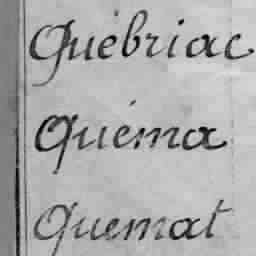 Quebriac
Quéma
Quemat